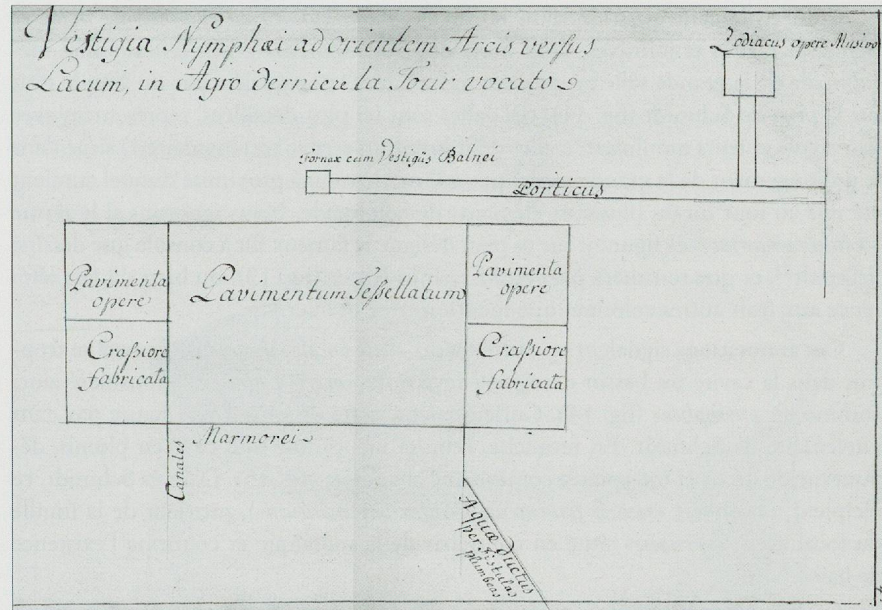 Vestigia Nymphæi ad orientem Arcis versus
Lacum, in Agro derriere la Tour vocato
Zodiacus opere Musivo
Fornax cum Vestigiis Balnei
Porticus
Pavimenta
opere
Pavimentum Tessellatum
Pavimenta
opere
Craſsiore
fabricata
Craſsiore
fabricata
Marmorei
Canales
Aquæ ductus
per fistulas
plumbeas